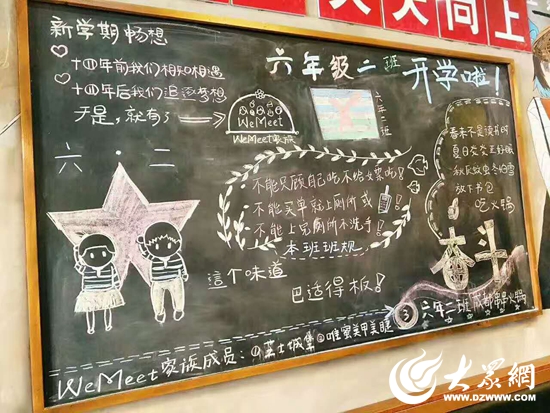 天天向上
新学期畅想
十四年前我们相知相遇
十四年后我们追逐梦想
于是，就有了
WeMeet
WeMeet家族
六年级二班
开学啦！
六年二班
六·二
·不能只顾自己吃不给
·不能买单就上厕所或
·不能上完厕所不洗手！
本班班规
春来不是读书时
夏日炎炎正好眠
秋有蚊虫冬有雪
放下书包
吃火锅
奋斗
這个味道
巴适得板！
WeMeet家族成员：①芝士城集②唯蜜美甲美睫
③六年二班成都串串火锅
大众網
WWW.DZWWW.COM